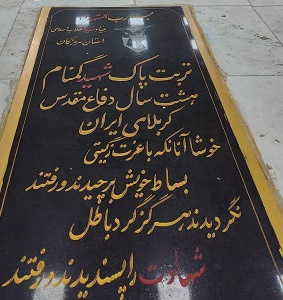 بنیاد شهید انقلاب اسلامی
استان هرمزگان
تربت پاک شهید گمنام
هشت سال دفاع مقدس
کربلای ایران
خوشا آنانکه با عزت ز گیتی
بساط خویش برچیدند و رفتند
نگردیدند هرگز گرد باطل
شهادت را پسندیدند و رفتند